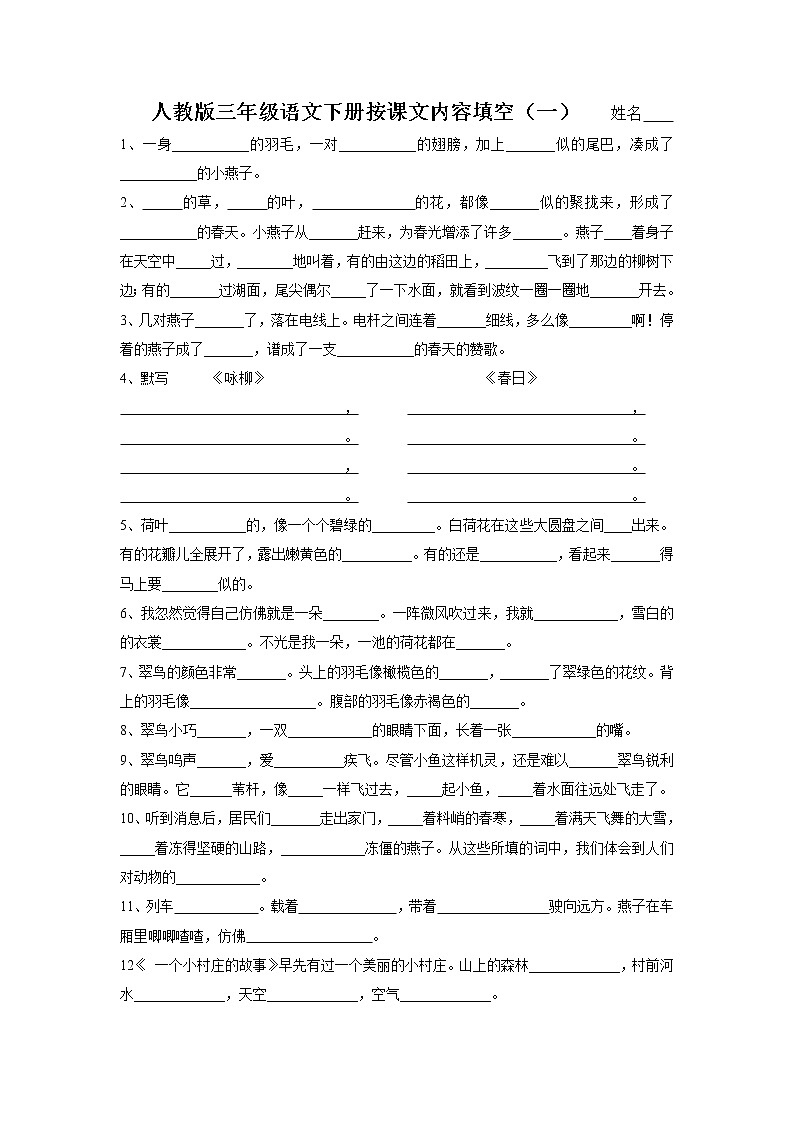 人教版三年级语文下册按课文内容填空（一）    姓名____
1、一身___________的羽毛，一对___________的翅膀，加上_______似的尾巴，凑成了
___________的小燕子。
2、______的草，______的叶，_______________的花，都像_______似的聚拢来，形成了
___________的春天。小燕子从_______赶来，为春光增添了许多_______。燕子____着身子
在天空中_____过，________地叫着，有的由这边的稻田上，_________飞到了那边的柳树下
边；有的_______过湖面，尾尖偶尔_____了一下水面，就看到波纹一圈一圈地_______开去。
3、几对燕子_______了，落在电线上。电杆之间连着_______细线，多么像_________啊！停
着的燕子成了_______，谱成了一支___________的春天的赞歌。
4、默写    《咏柳》    《春日》
________________________________，    ________________________________，
________________________________。    ________________________________。
________________________________，    ________________________________。
________________________________。    ________________________________。
5、荷叶___________的，像一个个碧绿的_________。白荷花在这些大圆盘之间____出来。
有的花瓣儿全展开了，露出嫩黄色的__________。有的还是___________，看起来_______得
马上要________似的。
6、我忽然觉得自己仿佛就是一朵________。一阵微风吹过来，我就____________，雪白的
的衣裳____________。不光是我一朵，一池的荷花都在_______。
7、翠鸟的颜色非常_______。头上的羽毛像橄榄色的_______，_______了翠绿色的花纹。背
上的羽毛像__________________。腹部的羽毛像赤褐色的_______。
8、翠鸟小巧_______，一双____________的眼睛下面，长着一张____________的嘴。
9、翠鸟鸣声_______，爱__________疾飞。尽管小鱼这样机灵，还是难以_______翠鸟锐利
的眼睛。它______苇杆，像_____一样飞过去，_____起小鱼，_____着水面往远处飞走了。
10、听到消息后，居民们_______走出家门，_____着料峭的春寒，_____着满天飞舞的大雪，
_____着冻得坚硬的山路，____________冻僵的燕子。从这些所填的词中，我们体会到人们
对动物的____________。
11、列车____________。载着______________，带着________________驶向远方。燕子在车
厢里唧唧喳喳，仿佛__________________。
12《 一个小村庄的故事》早先有过一个美丽的小村庄。山上的森林_____________，村前河
水_____________，天空_____________，空气_____________。